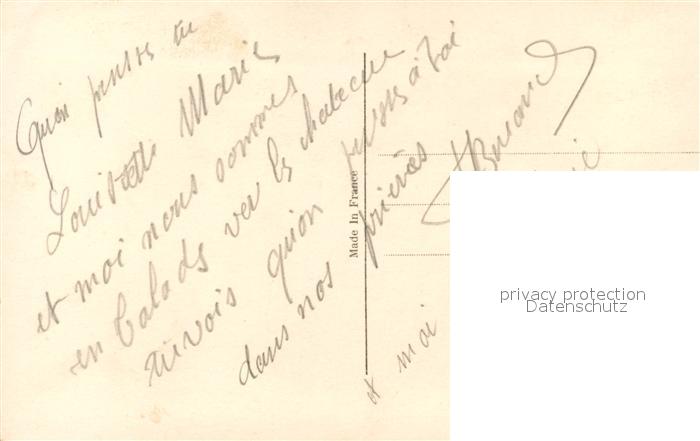 Quan penses tu
Louisette Marie
et moi nous sommes
en balads ver les chaleur
tu vois quon pense à toi
dans nos prières
et moi
Made In France
privacy protection
Datenschutz